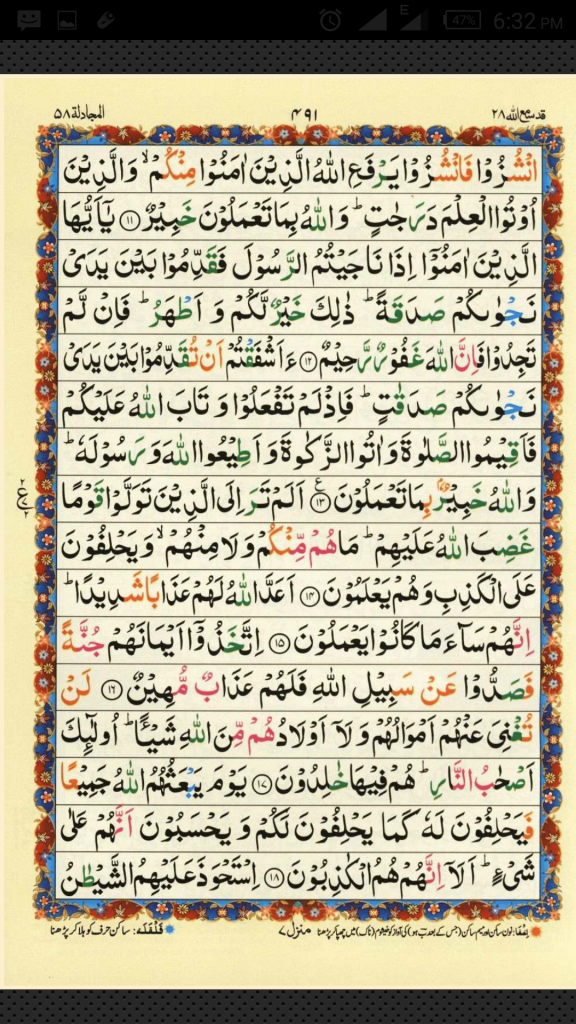 E 47% 6:32 PM
قد سمع الله ٢٨ ٤٩١ المجادلة ٥٨
انْشُزُوْا فَانْشُزُوْا يَرْفَعِ اللّٰهُ الَّذِيْنَ اٰمَنُوْا مِنْكُمْ ۙ وَالَّذِيْنَ
اُوْتُوا الْعِلْمَ دَرَجٰتٍ ؕ وَاللّٰهُ بِمَا تَعْمَلُوْنَ خَبِيْرٌ ۝۱۱ يٰۤاَيُّهَا
الَّذِيْنَ اٰمَنُوْۤا اِذَا نَاجَيْتُمُ الرَّسُوْلَ فَقَدِّمُوْا بَيْنَ يَدَيْ
نَجْوٰىكُمْ صَدَقَةً ؕ ذٰلِكَ خَيْرٌ لَّكُمْ وَ اَطْهَرُ ؕ فَاِنْ لَّمْ
تَجِدُوْا فَاِنَّ اللّٰهَ غَفُوْرٌ رَّحِيْمٌ ۝۱۲ ءَاَشْفَقْتُمْ اَنْ تُقَدِّمُوْا بَيْنَ يَدَيْ
نَجْوٰىكُمْ صَدَقٰتٍ ؕ فَاِذْ لَمْ تَفْعَلُوْا وَ تَابَ اللّٰهُ عَلَيْكُمْ
فَاَقِيْمُوا الصَّلٰوةَ وَ اٰتُوا الزَّكٰوةَ وَ اَطِيْعُوا اللّٰهَ وَ رَسُوْلَهٗ ؕ
وَاللّٰهُ خَبِيْرٌۢ بِمَا تَعْمَلُوْنَ ۝۱۳ ع اَلَمْ تَرَ اِلَى الَّذِيْنَ تَوَلَّوْا قَوْمًا
غَضِبَ اللّٰهُ عَلَيْهِمْ ؕ مَا هُمْ مِّنْكُمْ وَ لَا مِنْهُمْ ۙ وَ يَحْلِفُوْنَ
عَلَى الْكَذِبِ وَ هُمْ يَعْلَمُوْنَ ۝۱۴ اَعَدَّ اللّٰهُ لَهُمْ عَذَابًا شَدِيْدًا ؕ
اِنَّهُمْ سَآءَ مَا كَانُوْا يَعْمَلُوْنَ ۝۱۵ اِتَّخَذُوْۤا اَيْمَانَهُمْ جُنَّةً
فَصَدُّوْا عَنْ سَبِيْلِ اللّٰهِ فَلَهُمْ عَذَابٌ مُّهِيْنٌ ۝۱۶ لَنْ
تُغْنِيَ عَنْهُمْ اَمْوَالُهُمْ وَ لَاۤ اَوْلَادُهُمْ مِّنَ اللّٰهِ شَيْـًٔا ؕ اُولٰٓئِكَ
اَصْحٰبُ النَّارِ ؕ هُمْ فِيْهَا خٰلِدُوْنَ ۝۱۷ يَوْمَ يَبْعَثُهُمُ اللّٰهُ جَمِيْعًا
فَيَحْلِفُوْنَ لَهٗ كَمَا يَحْلِفُوْنَ لَكُمْ وَ يَحْسَبُوْنَ اَنَّهُمْ عَلٰى
شَيْءٍ ؕ اَلَاۤ اِنَّهُمْ هُمُ الْكٰذِبُوْنَ ۝۱۸ اِسْتَحْوَذَ عَلَيْهِمُ الشَّيْطٰنُ
منزل ۷
قلقلہ: ساکن حرف کو ہلا کر پڑھنا